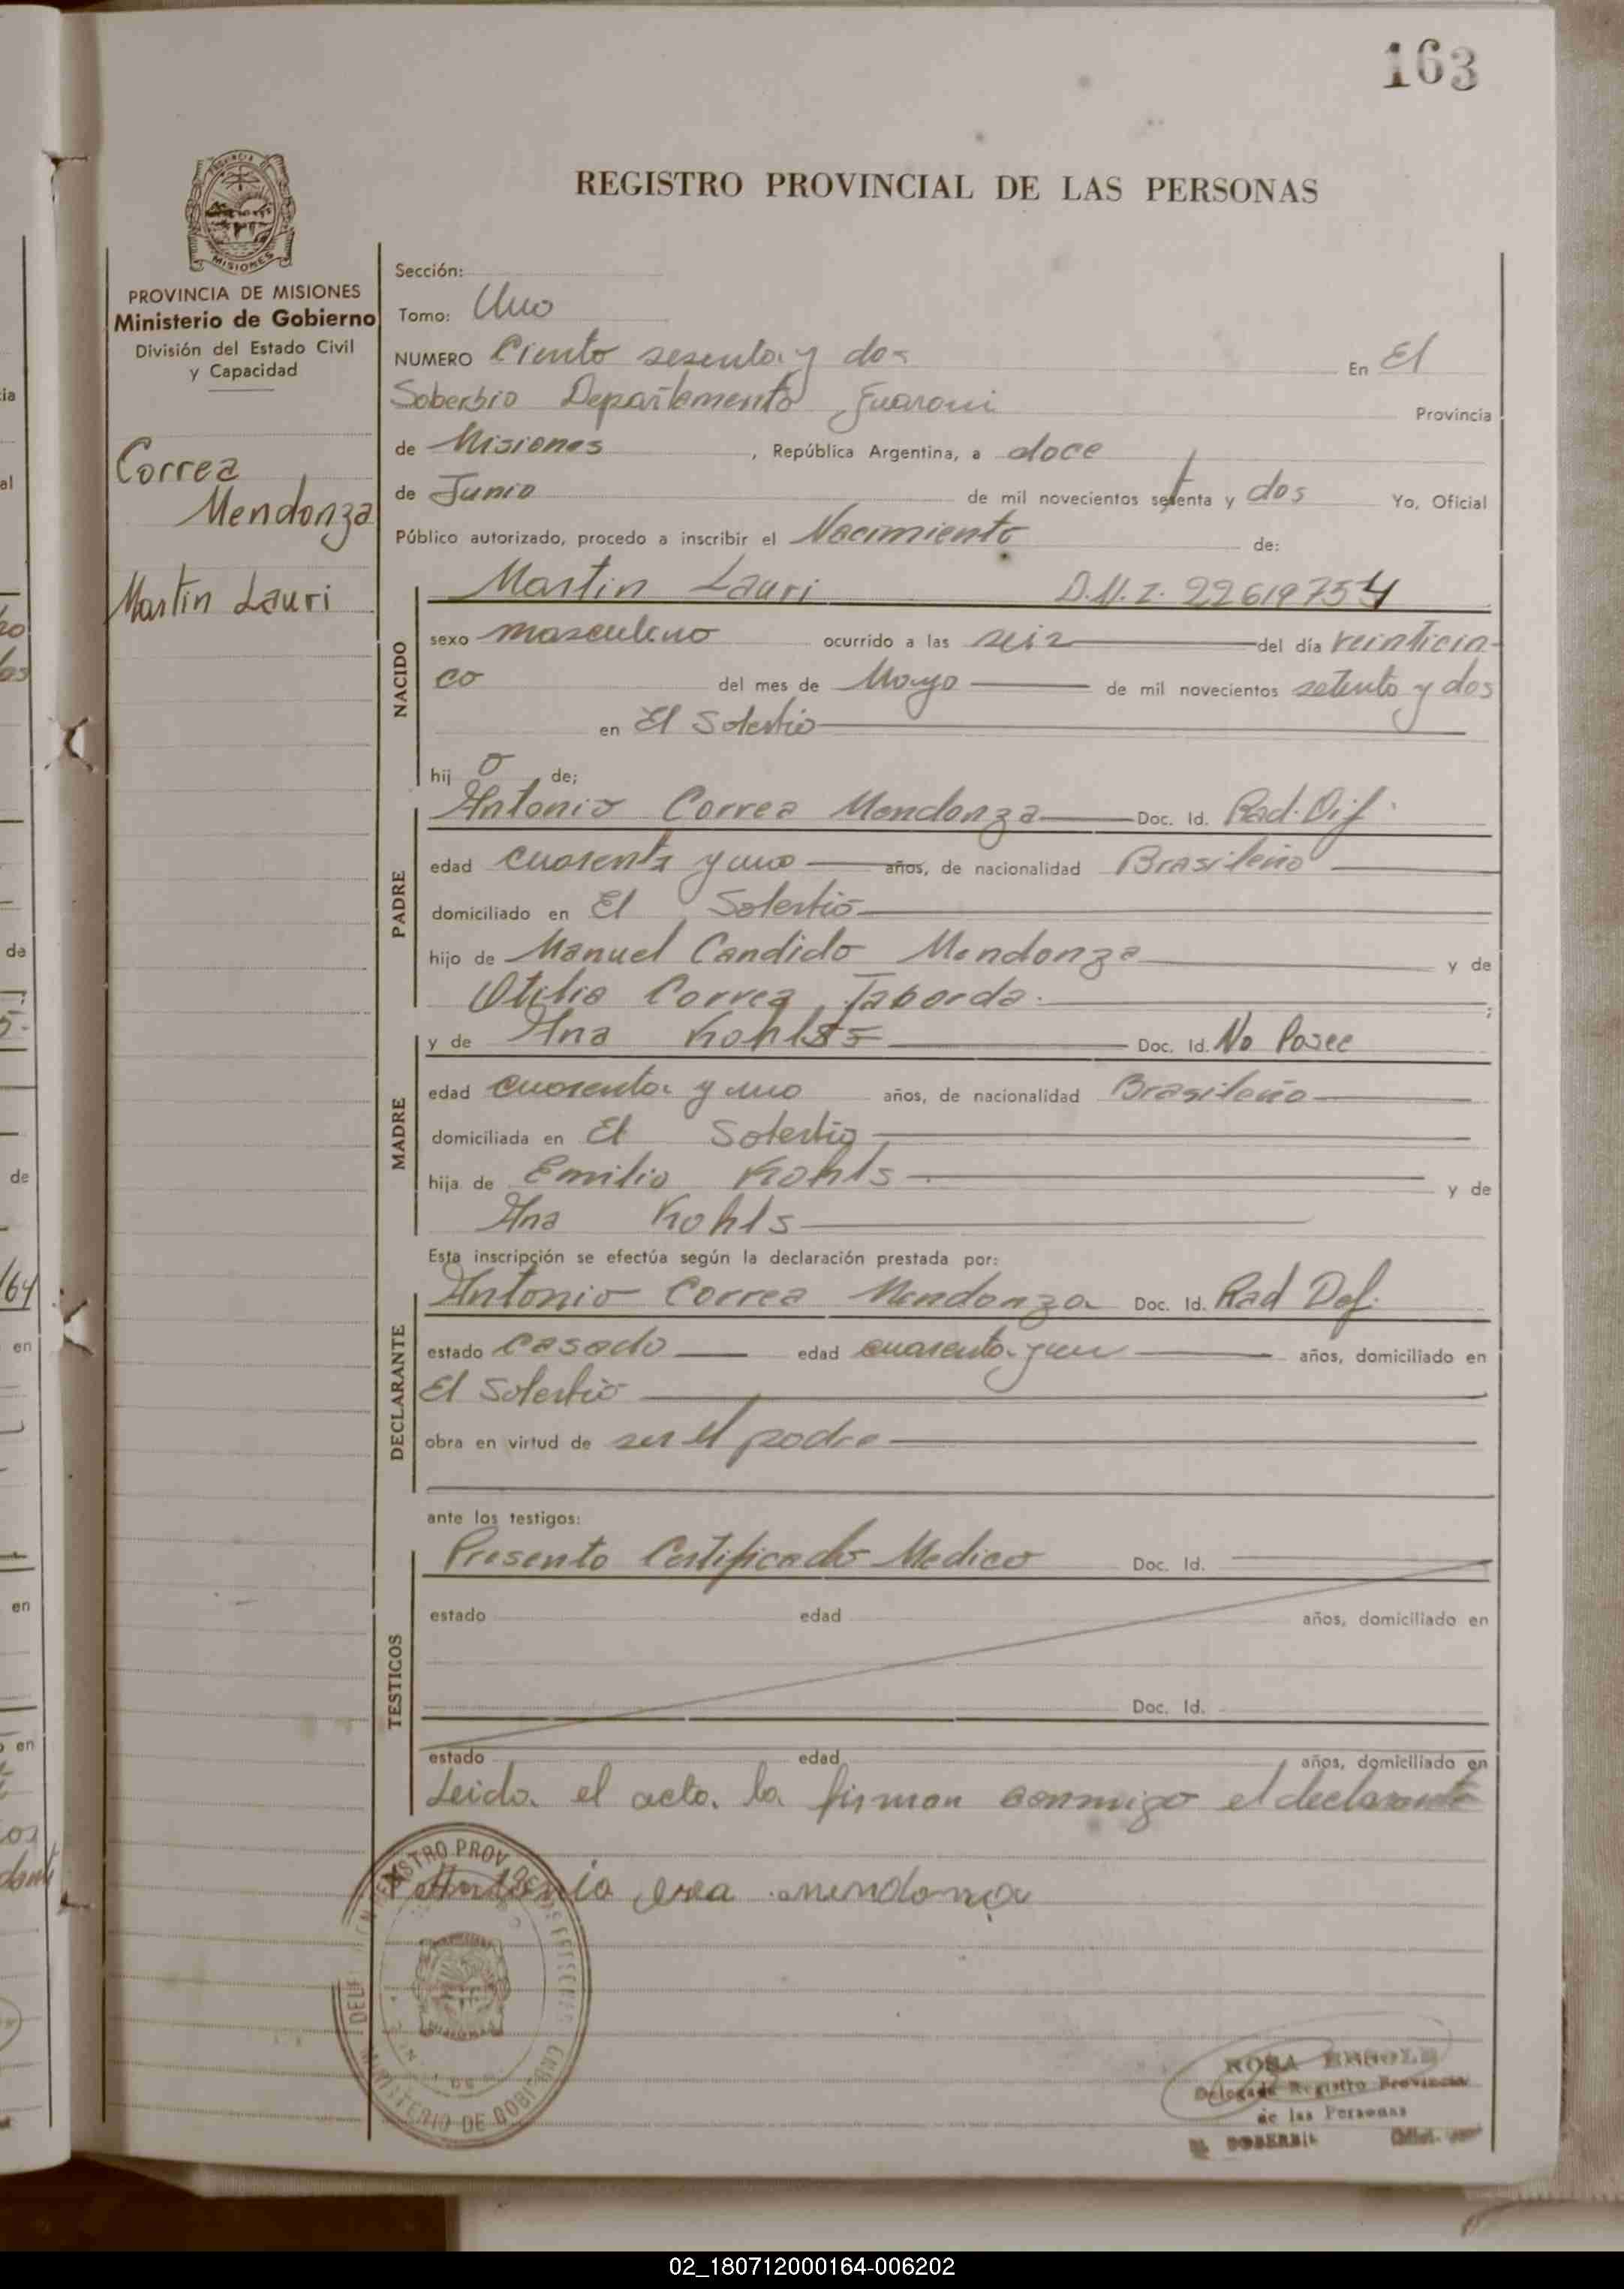 163
REGISTRO PROVINCIAL DE LAS PERSONAS
MISIONES
PROVINCIA DE MISIONES
Ministerio de Gobierno
División del Estado Civil
y Capacidad
Correa
Mendonza
Martin Lauri
Sección:
Tomo: Uno
NUMERO Ciento sesenta y dos En El
Soberbio Departamento Guarani Provincia
de Misiones, República Argentina, a doce
de Junio de mil novecientos setenta y dos Yo, Oficial
Público autorizado, procedo a inscribir el Nacimiento de:
Martin Lauri D.N.I. 22619754
NACIDO
sexo masculino ocurrido a las seis del día veinticin-
co del mes de Mayo de mil novecientos setenta y dos
en El Soberbio
hij o de;
PADRE
Antonio Correa Mendonza Doc. Id. Rad. Dif.
edad cuarenta y uno años, de nacionalidad Brasileño
domiciliado en El Soberbio
hijo de Manuel Candido Mendonza y de
Otilia Correa Taborda ;
MADRE
y de Ana Kohls Doc. Id. No Posee
edad cuarenta y uno años, de nacionalidad Brasileña
domiciliada en El Soberbio
hija de Emilio Kohls y de
Ana Kohls
Esta inscripción se efectúa según la declaración prestada por:
DECLARANTE
Antonio Correa Mendonza Doc. Id. Rad Def.
estado casado edad cuarenta y un años, domiciliado en
El Soberbio
obra en virtud de ser el padre
ante los testigos:
TESTICOS
Presento Certificado Medico Doc. Id.
estado edad años, domiciliado en
Doc. Id.
estado edad años, domiciliado en
Leida el acta la firman conmigo el declarante
Antonio
MINISTERIO DE GOBIERNO
ROSA
Delegada Registro Provincial
de las Personas
EL SOBERBIO
02_180712000164-006202